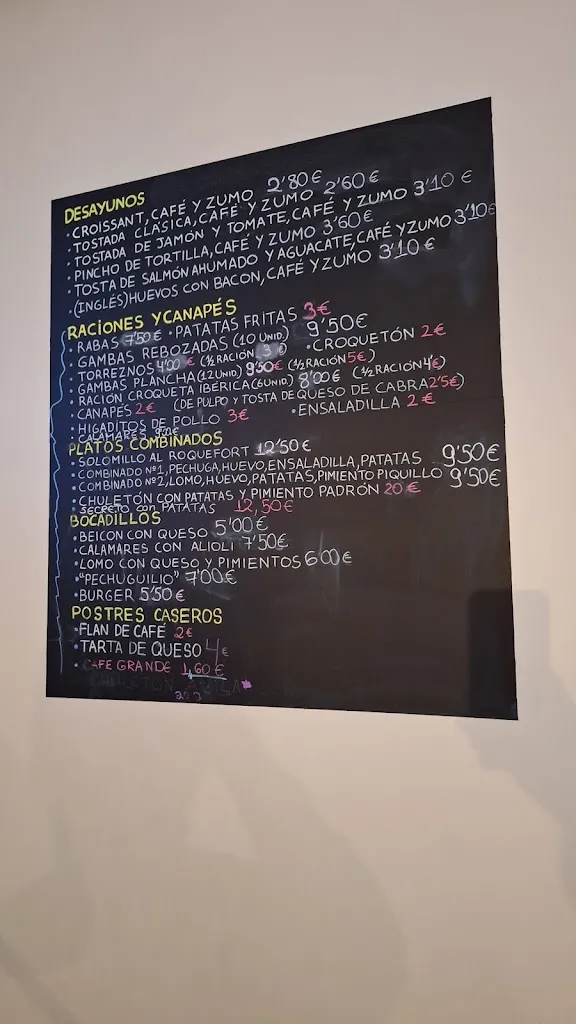 DESAYUNOS
• CROISSANT, CAFÉ Y ZUMO 2'80€
• TOSTADA CLÁSICA, CAFÉ Y ZUMO 2'60€
• TOSTADA DE JAMÓN Y TOMATE, CAFÉ Y ZUMO 3'10€
• PINCHO DE TORTILLA, CAFÉ Y ZUMO 3'60€
• TOSTA DE SALMÓN AHUMADO Y AGUACATE, CAFÉ Y ZUMO 3'10€
• (INGLÉS) HUEVOS CON BACON, CAFÉ Y ZUMO 3'10€
RACIONES Y CANAPÉS
• RABAS 7'50€ • PATATAS FRITAS 3€
• GAMBAS REBOZADAS (10 UNID.) 9'50€
• TORREZNOS 4'00€ (½ RACIÓN 3€) • CROQUETÓN 2€
• GAMBAS PLANCHA (12 UNID) 9'50€ (½ RACIÓN 5€)
• RACIÓN CROQUETA IBÉRICA (6 UNID) 8'00€ (½ RACIÓN 4€)
• CANAPÉS 2€ (DE PULPO Y TOSTA DE QUESO DE CABRA 2'5€)
• HIGADITOS DE POLLO 3€ • ENSALADILLA 2€
• CALAMARES
PLATOS COMBINADOS
• SOLOMILLO AL ROQUEFORT 12'50€
• COMBINADO Nº1, PECHUGA, HUEVO, ENSALADILLA, PATATAS 9'50€
• COMBINADO Nº2, LOMO, HUEVO, PATATAS, PIMIENTO PIQUILLO 9'50€
• CHULETÓN CON PATATAS Y PIMIENTO PADRÓN 20€
• SECRETO con PATATAS 12,50€
BOCADILLOS
• BEICON CON QUESO 5'00€
• CALAMARES CON ALIOLI 7'50€
• LOMO CON QUESO Y PIMIENTOS 6'00€
• "PECHUGUILIO" 7'00€
• BURGER 5'50€
POSTRES CASEROS
• FLAN DE CAFÉ 2€
• TARTA DE QUESO 4€
• CAFE GRANDE 1,60€